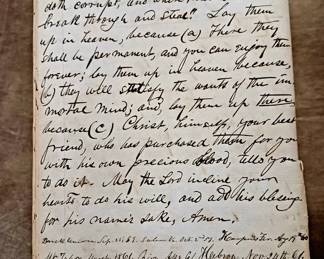 doth corrupt, and where
break through and steal? Lay them
up in heaven, because (a) There they
shall be permanent, and you can enjoy them
forever; lay them up in heaven because,
(b) they will satisfy the wants of the im
mortal mind; and, lay them up there
because (c) Christ, himself, your best
friend, who has purchased them for you
with his own precious blood, tells you
to do it. May the Lord incline your
hearts to do his will, and add his blessing
for his name's sake, Amen.
Sep. 1861. Oct. 2
1861. Aug. 61. Hebron, Nov. 24th, 61.